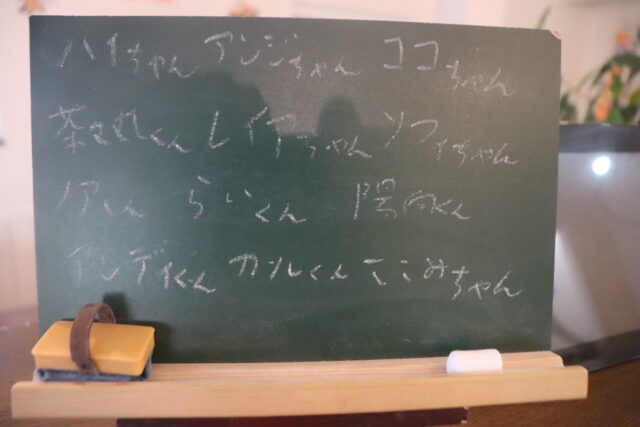 ハイちゃん アンジちゃん ココちゃん
茶々丸くん レイアちゃん ソフィちゃん
ノアくん らいくん 陽向くん
アンディくん カルくん ここみちゃん